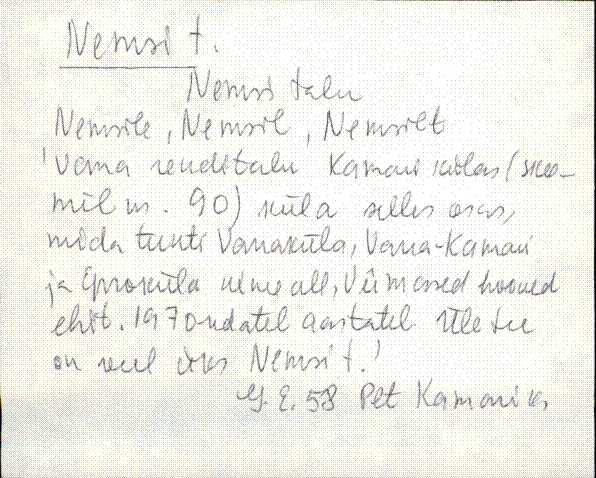 Nemsi t.
Nemsi talu
Nemsile, Nemsil, Nemsilt
'Vana renditalu Kamari külas (
nr. 90) küla selles osas,
mida tunti Vanaküla, Vana-Kamari
ja küla nime all, Viimased hooned
ehit. 1970ndatel aastatel. Üle tee
on veel üks Nemsi t.'
E. 58 Plt Kamari k,